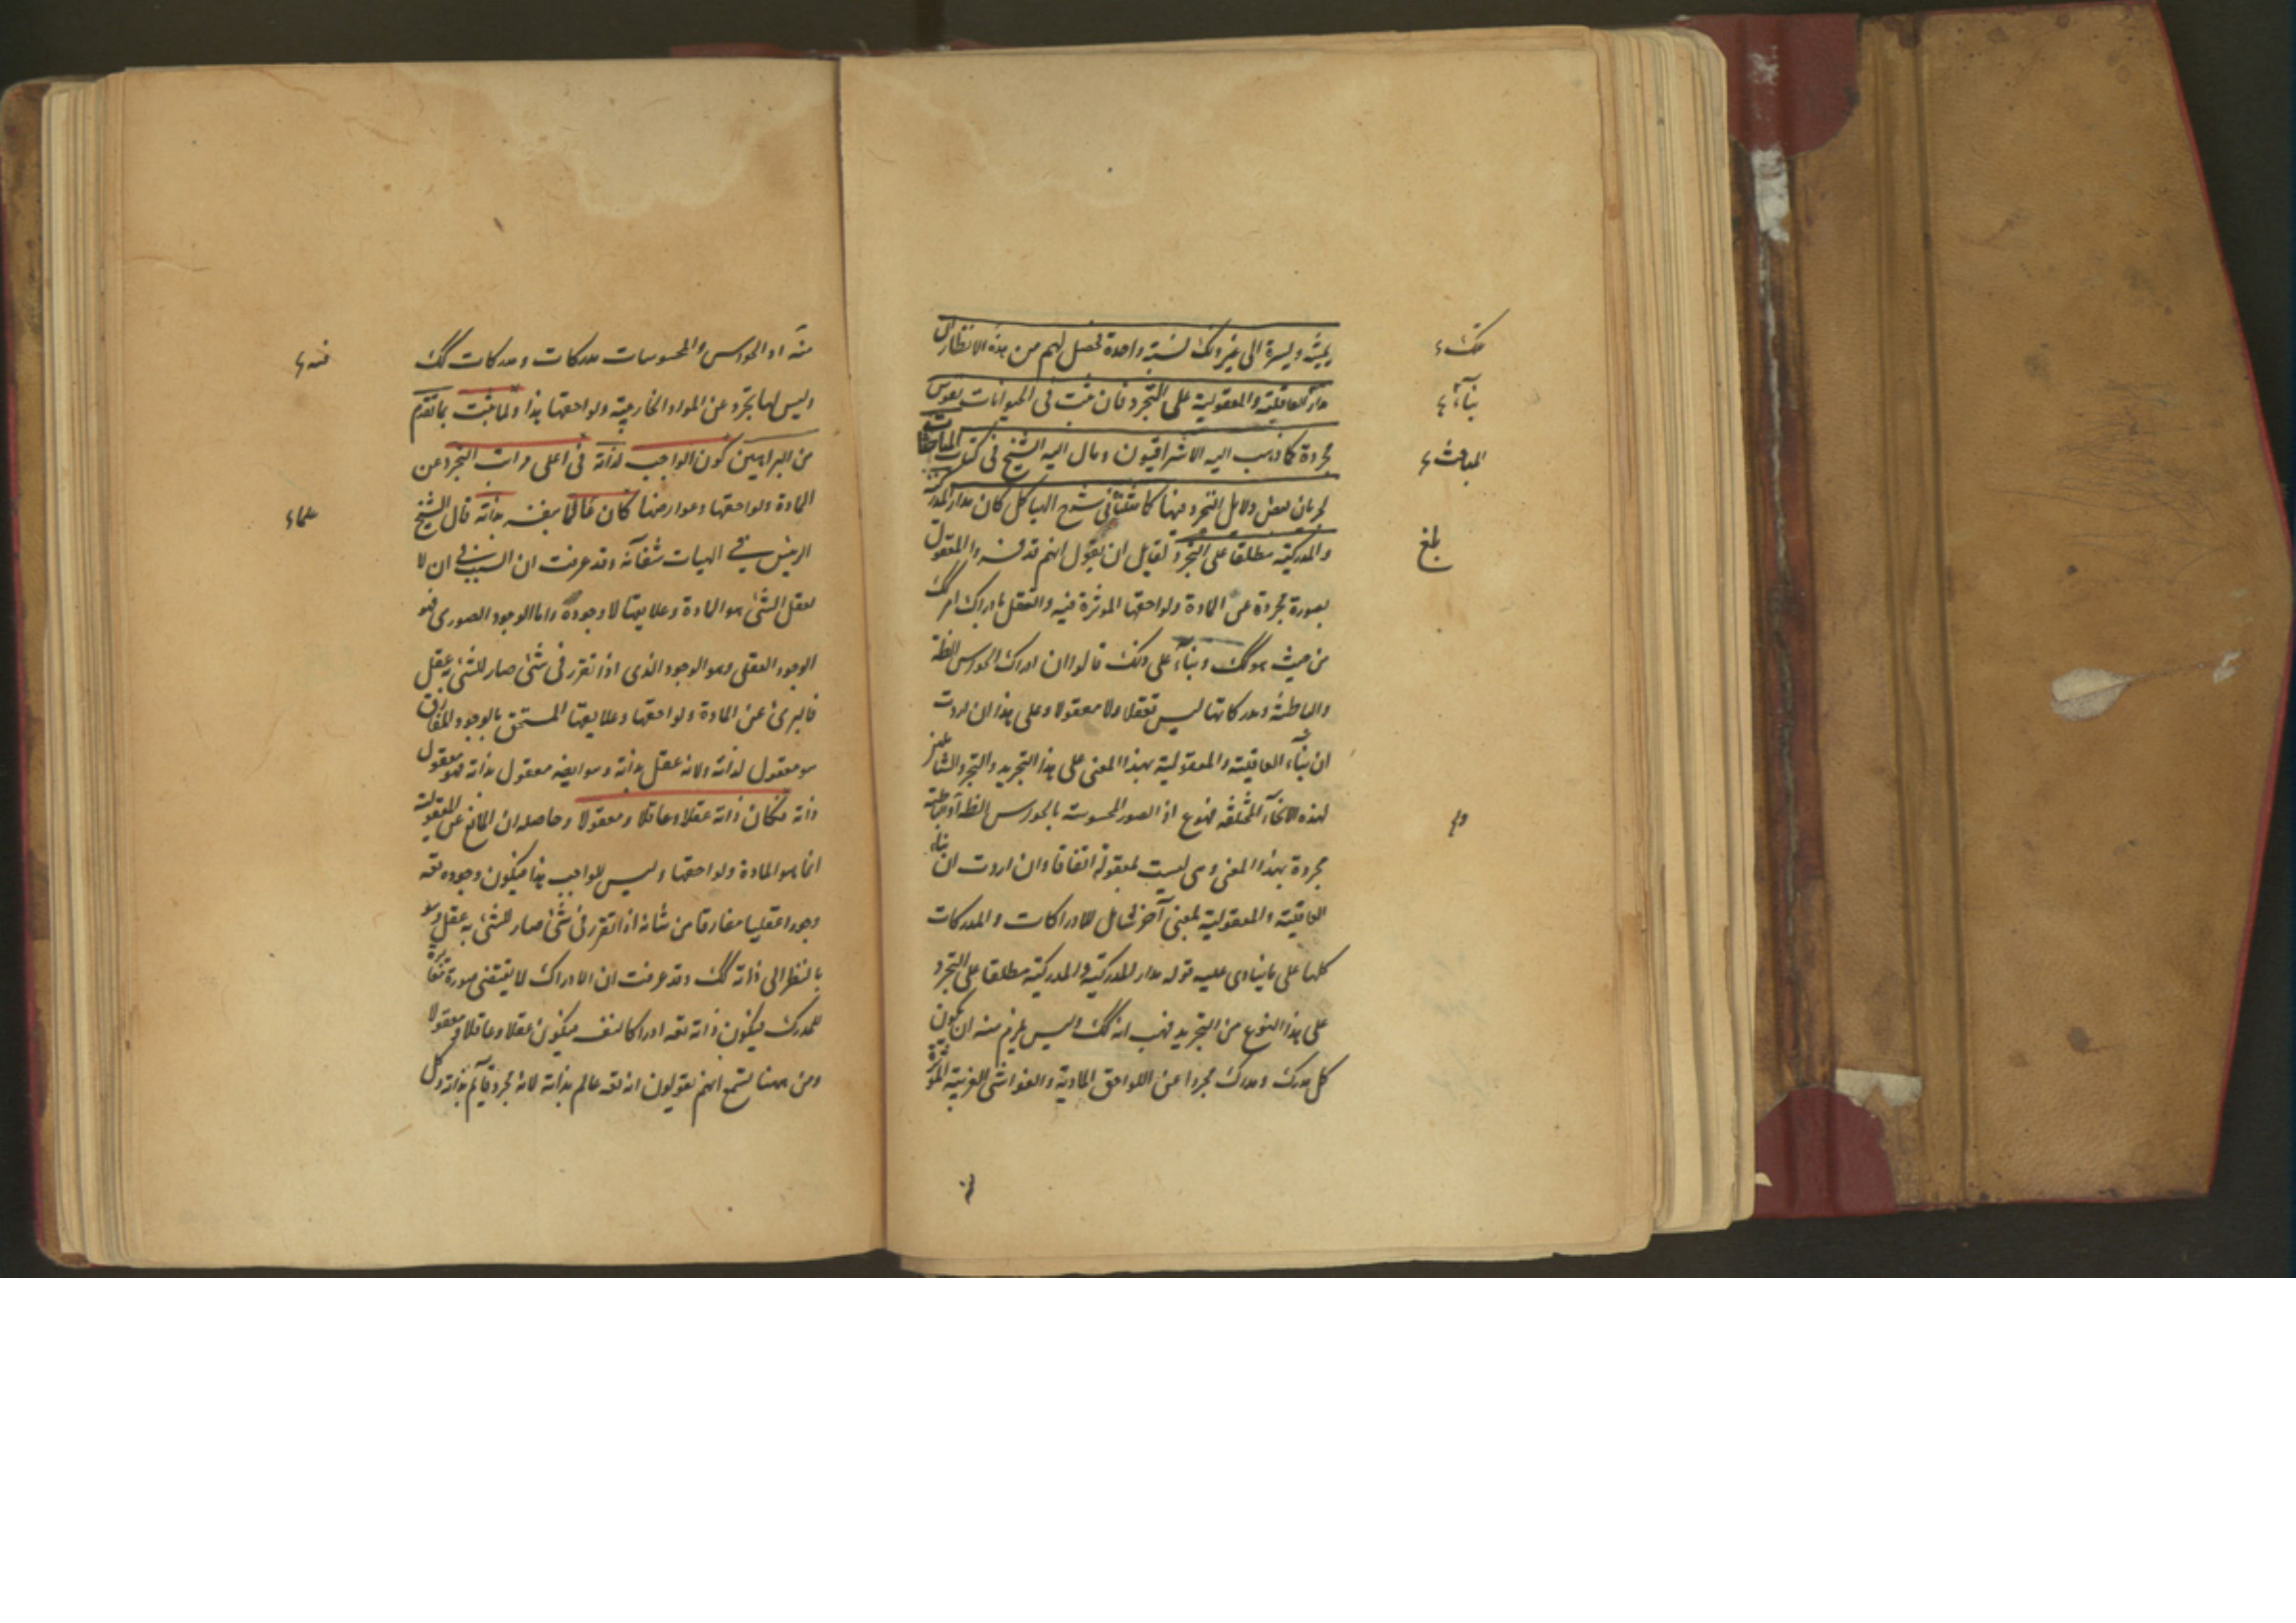 يمينه ويسرة الى غير ذلك نسبة واحدة فحصل لهم من هذه الانظار ان
مدار العاقلية والمعقولية على التجرد فان ثبت فى الحيوانات نفوس
مجردة كما ذهب اليه الاشراقيون ومال اليه الشيخ فى كتاب المباحثات
لجريان بعض دلايل التجرد فيها كما بينا فى شرح الهياكل كان مدار المدركية
والمدركية مطلقا على التجرد لقايل ان يقول انهم قد فسروا المعقول
بصورة مجردة عن المادة ولواحقها الموثرة فيه والتعقل بادراك امر كك
من حيث هو كك وبناء على ذلك قالوا ان ادراك الحواس الظاهرة
والباطنة ومدركاتها ليس تعقلا ولا معقولا وعلى هذا ان اردت
ان بناء العاقلية والمعقولية بهذا المعنى على هذا التجريد والتجرد الشامل
لهذه الانحاء المختلفة فممنوع اذ الصور المحسوسة بالحواس الظاهرة او الباطنة
مجردة بهذا المعنى وهى ليست بمعقولة اتفاقا وان اردت ان بناء
العاقلية والمعقولية بمعنى آخر شامل للادراكات والمدركات
كلها على ما ينادى عليه قوله مدار المدركية والمدركية مطلقا على التجرد
على هذا النوع من التجريد فهب انه كك وليس يلزم منه ان يكون
كل مدرك ومدرك مجردا عن اللواحق المادية والغواشى الغريبة الموثرة
بلغ
منه اذ الحواس والمحسوسات مدركات ومدركات كك
وليس لها تجرد عن المواد الخارجية ولواحقها هذا ولما ثبت بما تقدم
من البراهين كون الواجب لذاته فى اعلى مراتب التجرد عن
المادة ولواحقها وعوارضها كان عالما بنفسه بذاته قال الشيخ
الرئيس فى الهيات شفائه وقد عرفت ان السبب فى ان لا
يعقل الشئ هو المادة وعلايقها لا وجوده واما الوجود الصورى فهو
الوجود العقلى وهو الوجود الذى اذا تقرر فى شئ صار للشئ به عقل
فالبرئ عن المادة ولواحقها وعلايقها المستحق بالوجود المفارق
هو معقول لذاته ولانه عقل بذاته وهو ايضه معقول بذاته فهو معقول
ذاته فكان ذاته عقلا وعاقلا ومعقولا وحاصله ان المانع عن المعقولية
انما هو المادة ولواحقها وليس للواجب هذا فيكون وجوده تعه
وجودا عقليا مفارقا من شانه اذا تقرر فى شئ صار للشئ به عقل وهو
بالنظر الى ذاته كك وقد عرفت ان الادراك لا يقتضى صورة مغايرة
للمدرك فيكون ذاته تعه ادراكا لنفسه فيكون عقلا وعاقلا ومعقولا
ومن ههنا تسمع انهم يقولون انه تعه عالم بذاته لانه مجرد قايم بذاته وكل